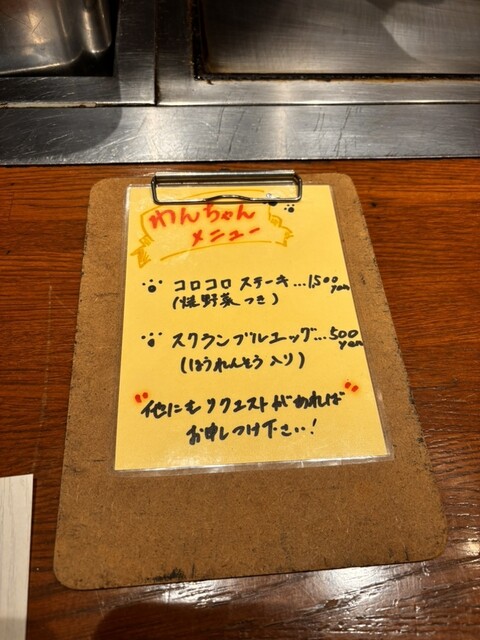 わんちゃん
メニュー
コロコロステーキ...1,500yen
(焼野菜つき)
スクランブルエッグ...500yen
(ほうれんそう入り)
"他にもリクエストがあれば"
お申しつけ下さい!